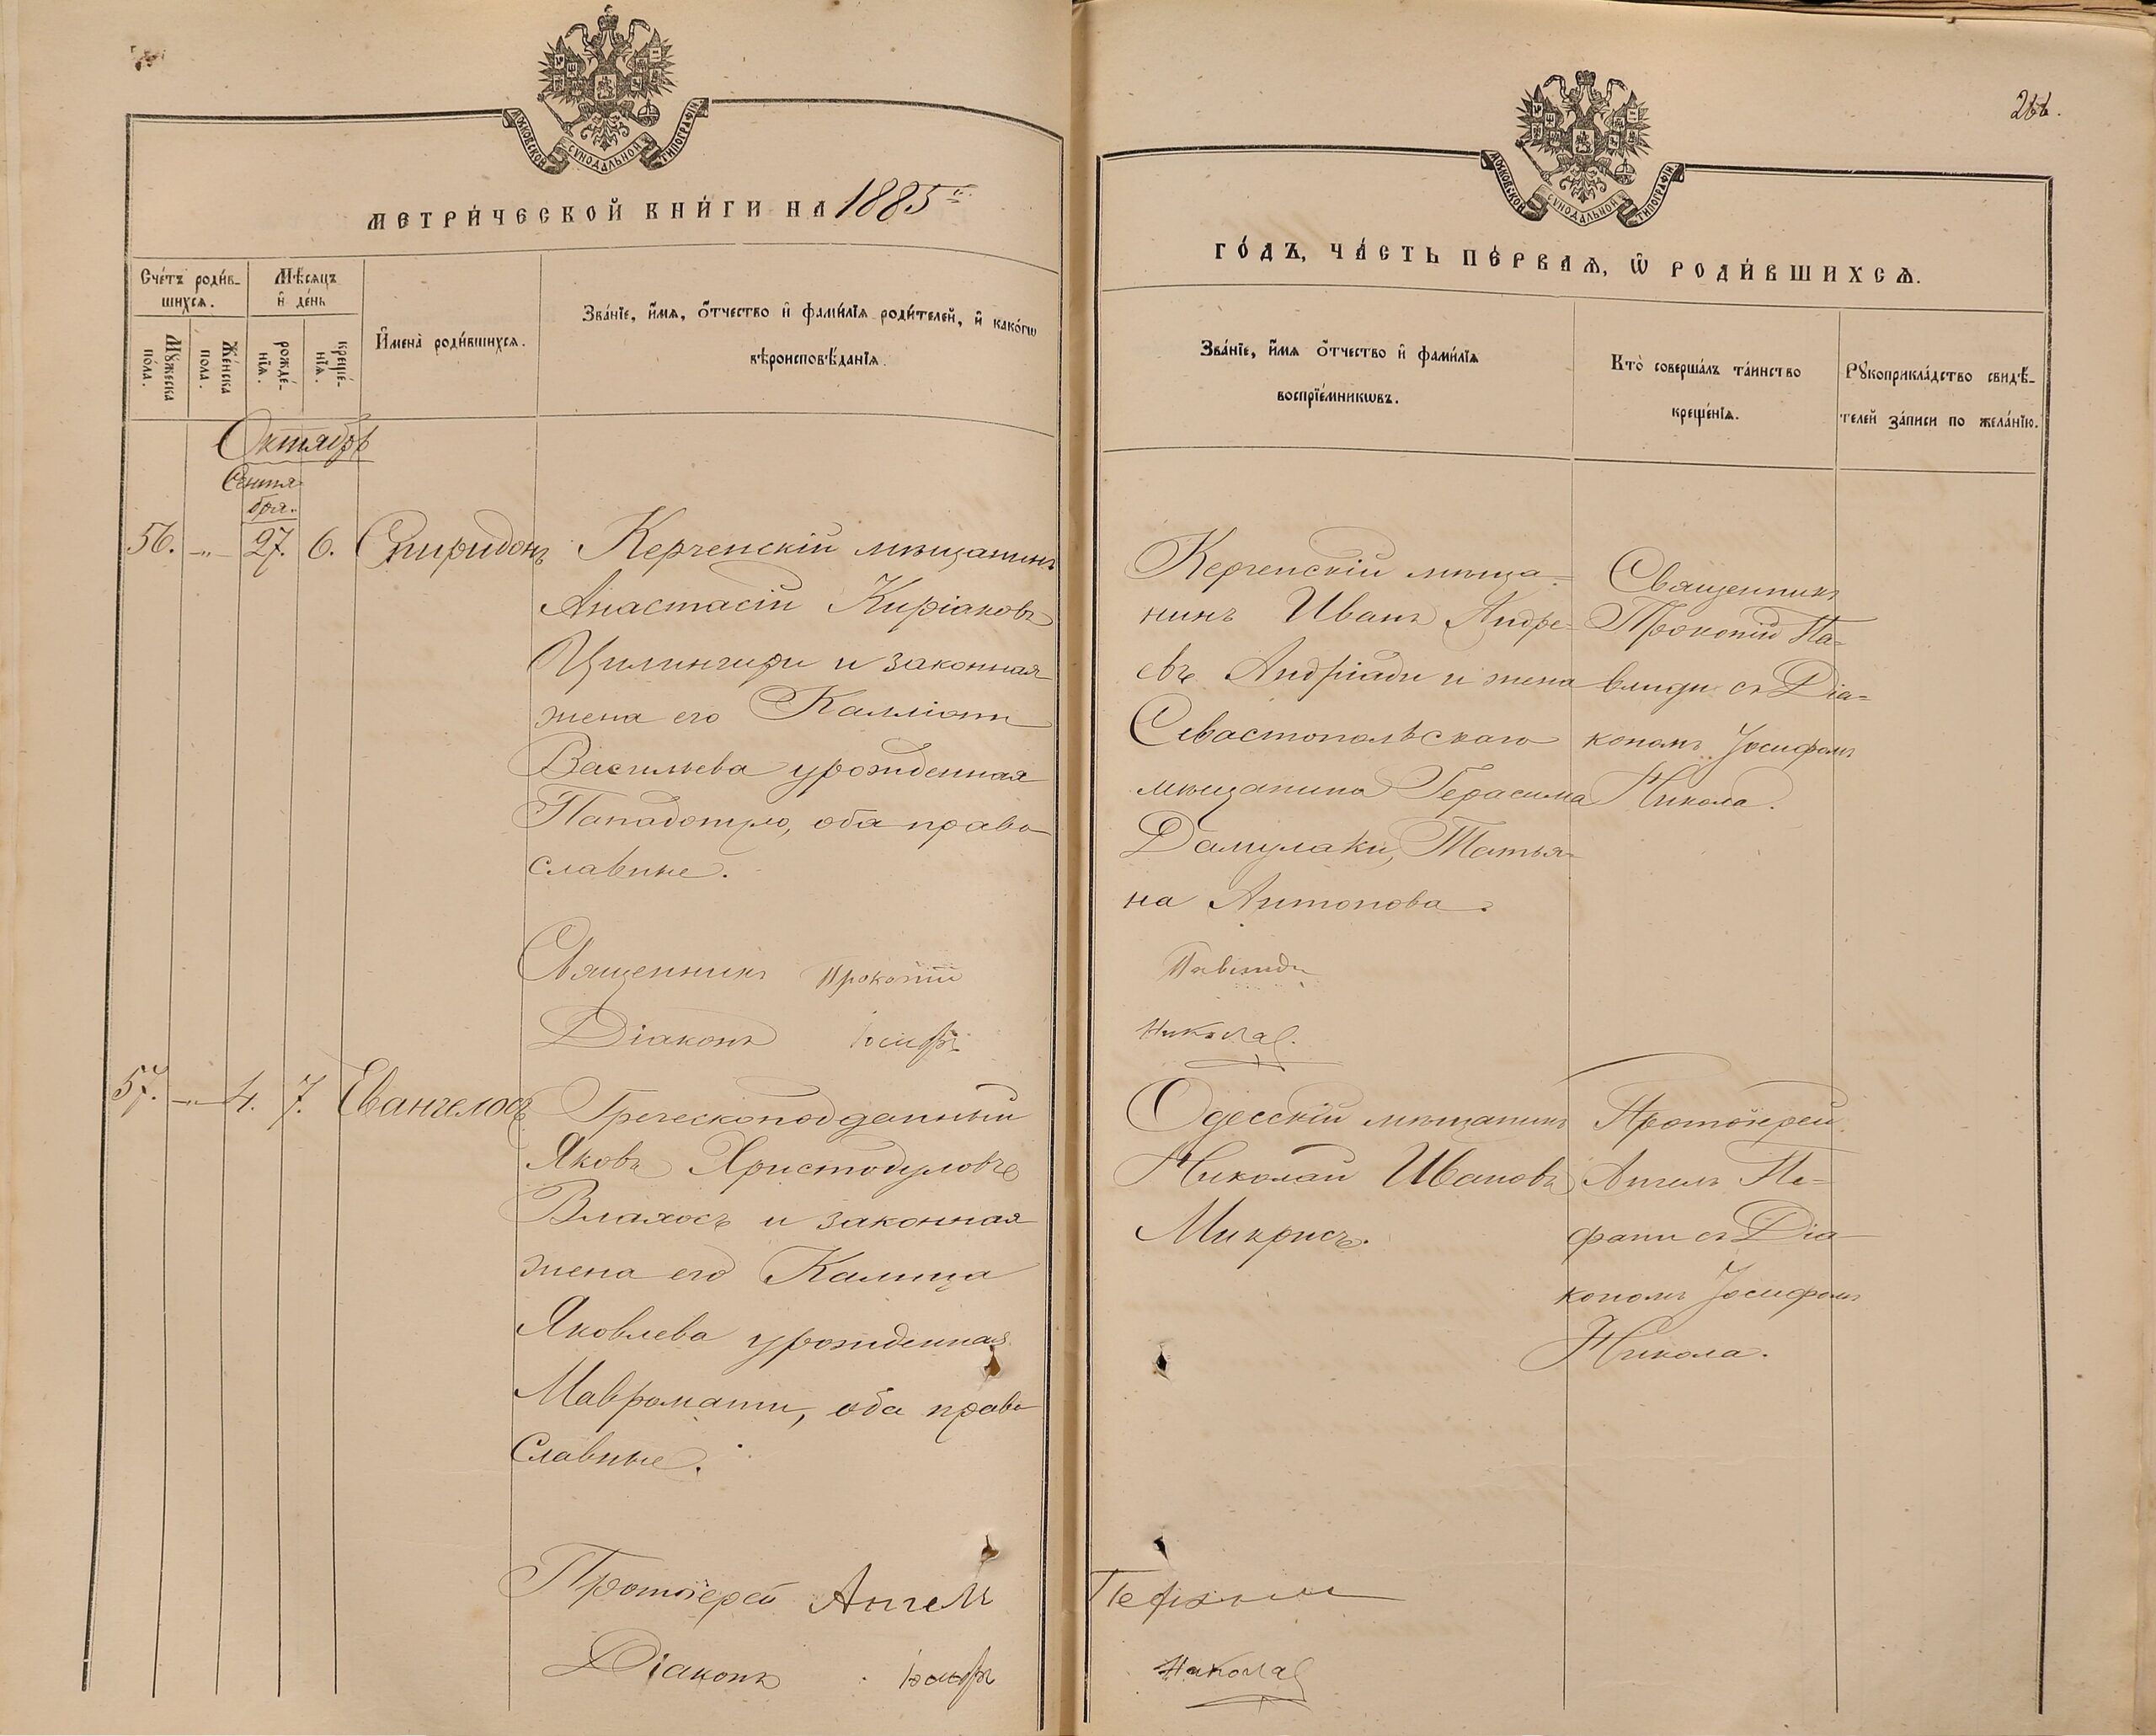 МОСКОВСКОЙ СѴНОДАЛЬНОЙ ТИПОГРАФІИ
МЕТРИ́ЧЕСКОЙ КНИ́ГИ НА 1885
Сче́тъ роди́в-
шихсѧ.
Мѣ́сѧцъ
и҆ де́нь
Мꙋ́жеска
по́ла.
Же́нска
пола.
рожде́-
нїѧ.
креще́-
нїѧ.
И҆мена̀ роди́вшихсѧ.
Зва́нїе, и҆́мѧ, ѻ҆́тчество и҆ фами́лїѧ роди́телей, и҆ како́гѡ
вѣроисповѣ́данїѧ.
Октябрь
Сентя-
бря.
56. -"- 27. 6. Спиридонъ
Керченскій мѣщанинъ
Анастасій Киріаковъ
Цилингири и законная
жена его Калліопи
Васильева урожденная
Пападопуло, оба право-
славные.
Священникъ Прокопій
Діаконъ Іосифъ
57. -"- 4. 7. Евангелосъ
Греческоподданный
Яковъ Христодуловъ
Влахосъ и законная
жена его Калица
Яковлева урожденная
Мавромати, оба право-
славные.
Протоіерей Ангелъ
Діаконъ Іосифъ
266.
МОСКОВСКОЙ СѴНОДАЛЬНОЙ ТИПОГРАФІИ
ГО́ДЪ, ЧА́СТЬ ПЕ́РВАѦ, Ѡ҆ РОДИ́ВШИХСѦ.
Зва́нїе, и҆́мѧ ѻ҆́тчество и҆ фами́лїѧ
воспрїе́мникѡвъ.
Кто̀ соверша́лъ та́инство
креще́нїѧ.
Рꙋкоприкла́дство свидѣ́-
телей за́писи по жела́нїю.
Керченскій мѣща-
нинъ Иванъ Андре-
евъ Андріади и жена
Севастопольскаго
мѣщанина Герасима
Дамулаки, Татья-
на Антонова.
Священникъ
Прокопій Па-
влиди съ Діа-
кономъ Іосифомъ
Никола.
Павлиди
Никола
Одесскій мѣщанинъ
Николай Ивановъ
Микрисъ.
Протоіерей
Ангелъ Пе-
фани съ Діа-
кономъ Іосифомъ
Никола.
Пефани
Никола